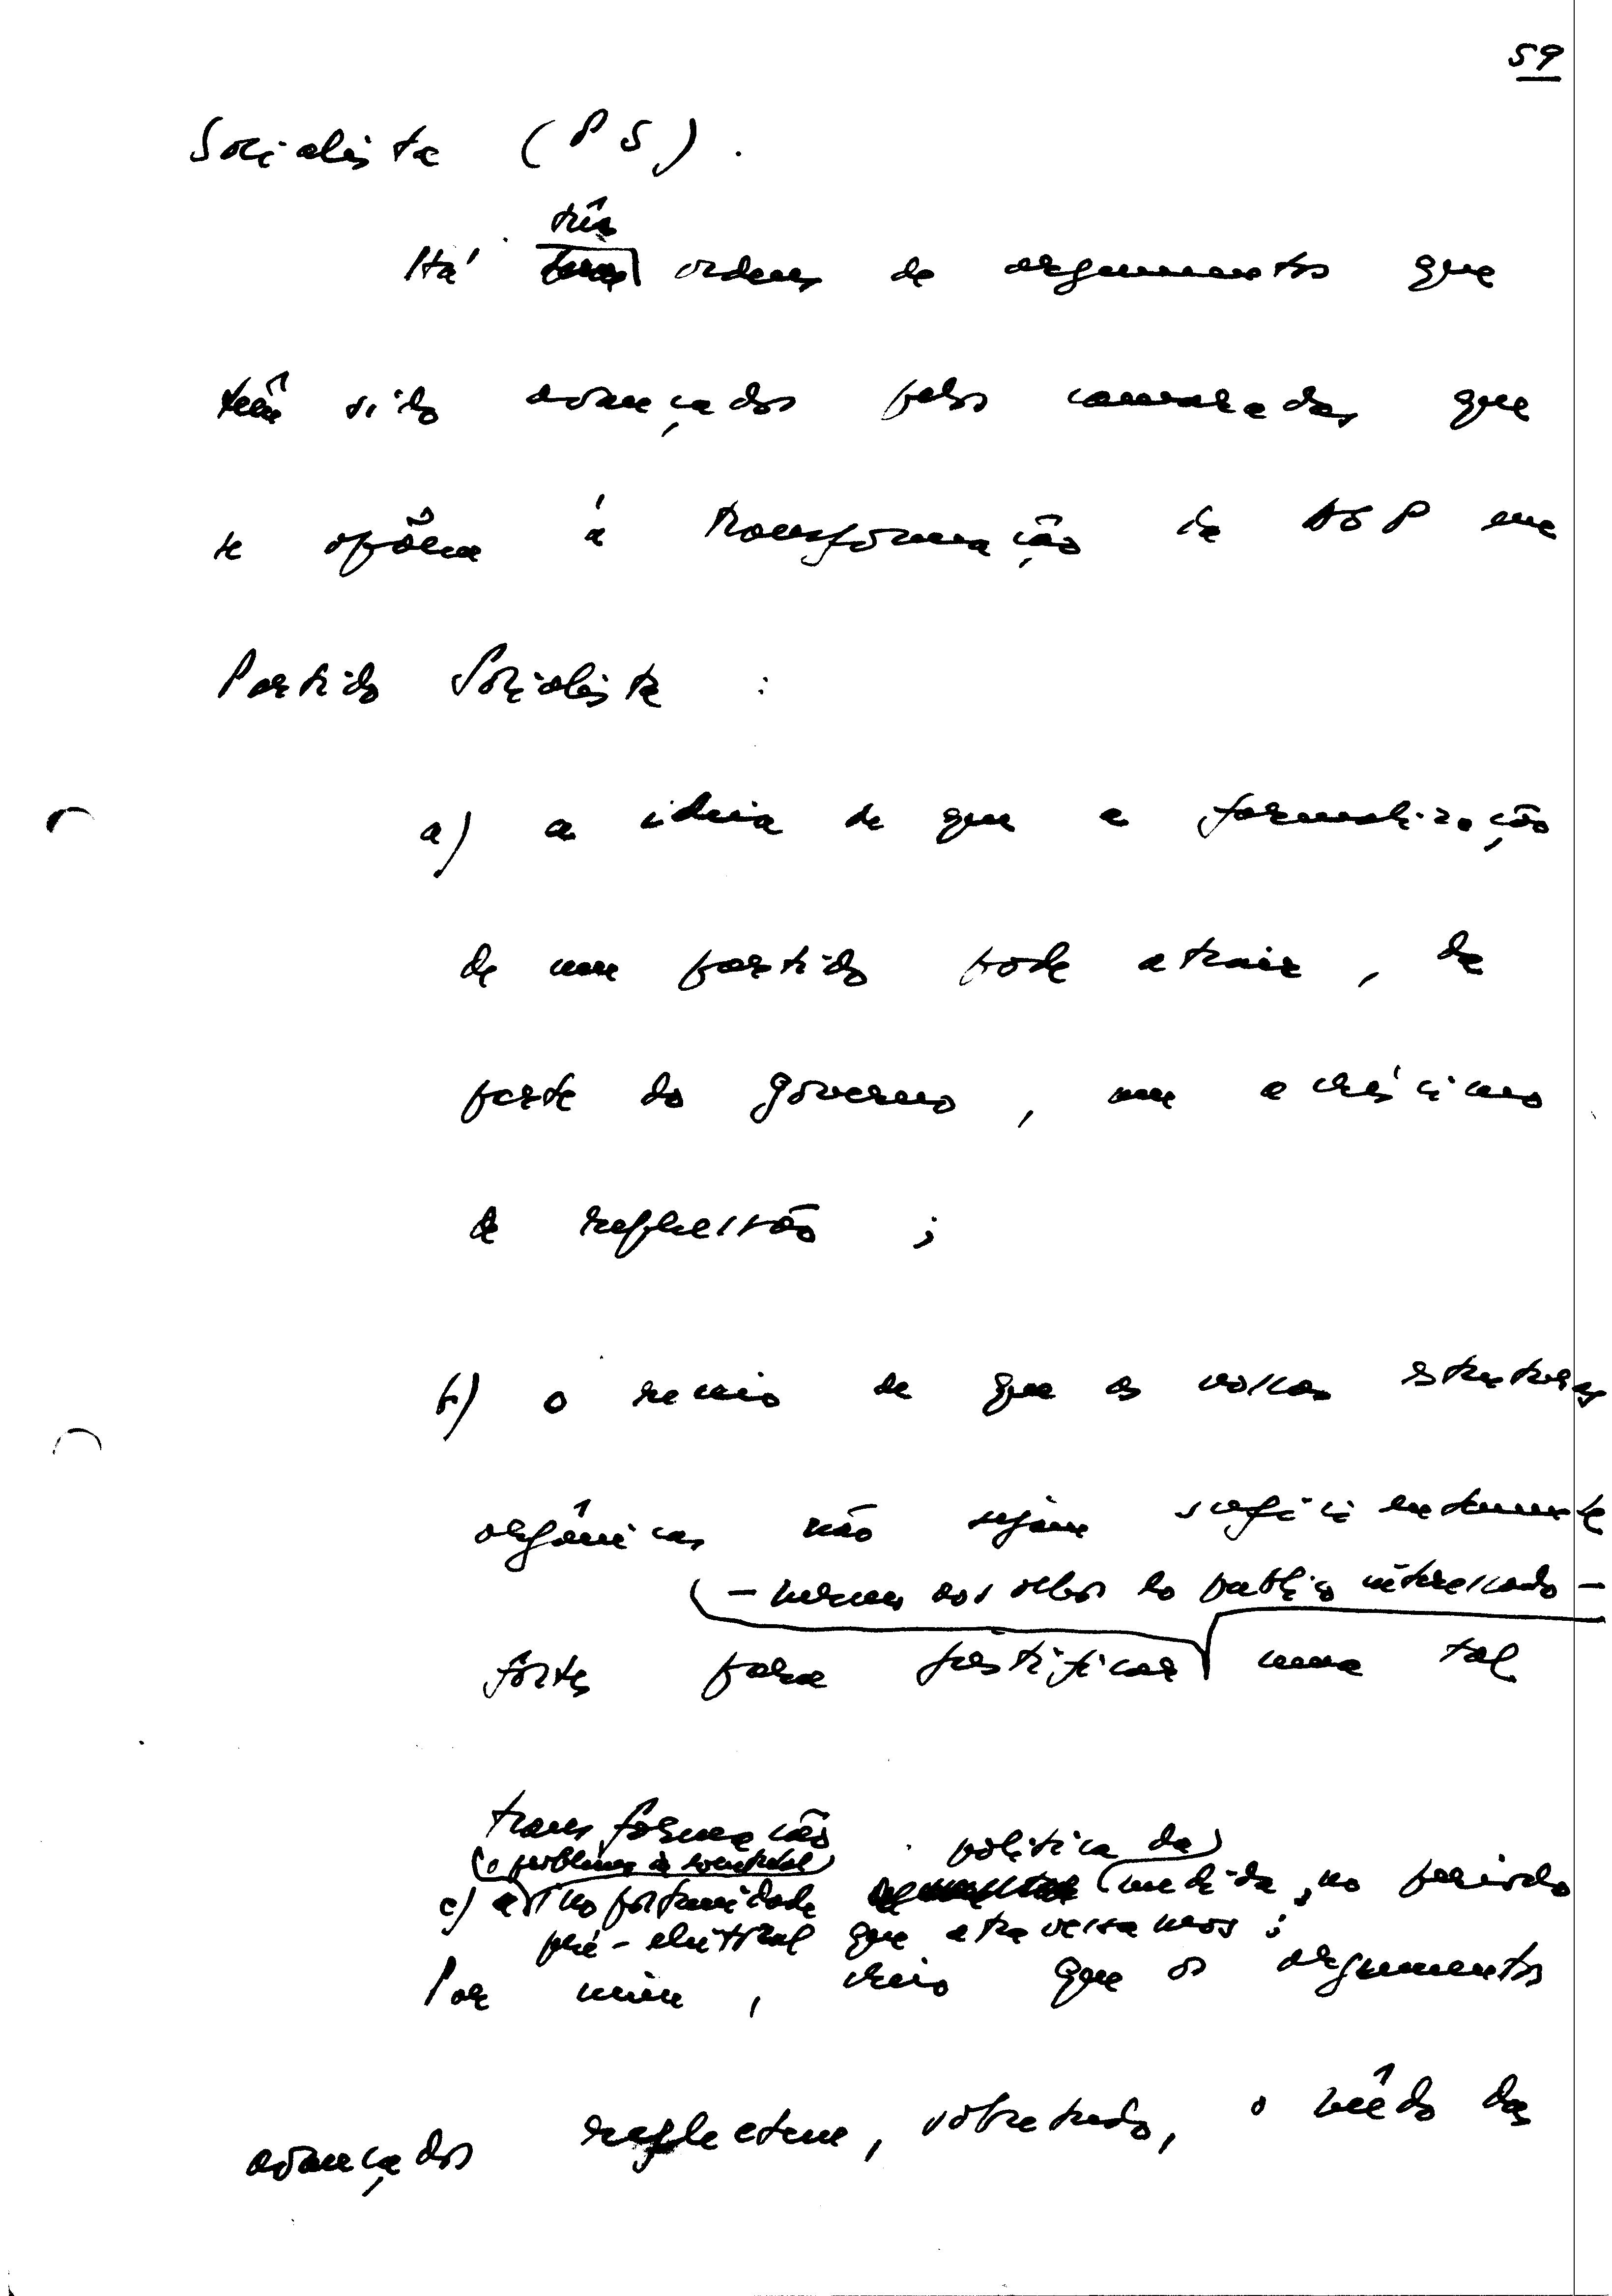 59
Socialista (PS).
três
Há ordens de argumentos que
têm sido avançados pelos camaradas que
se opõem à transformação da ASP em
Partido Socialista :
a) a ideia de que a formalização
de um partido pode atrair, da
parte do governo, um acréscimo
de repressão ;
b) o receio de que as nossas estruturas
orgânicas não sejam suficientemente
— mesmo aos olhos do público interessado —
fortes para justificar uma tal
transformação
política da
(o problema da
c) a inoportunidade medida, no período
pré-eleitoral que atravessamos ;
Por mim, creio que os argumentos
avançados reflectem, sobretudo, o mêdo das